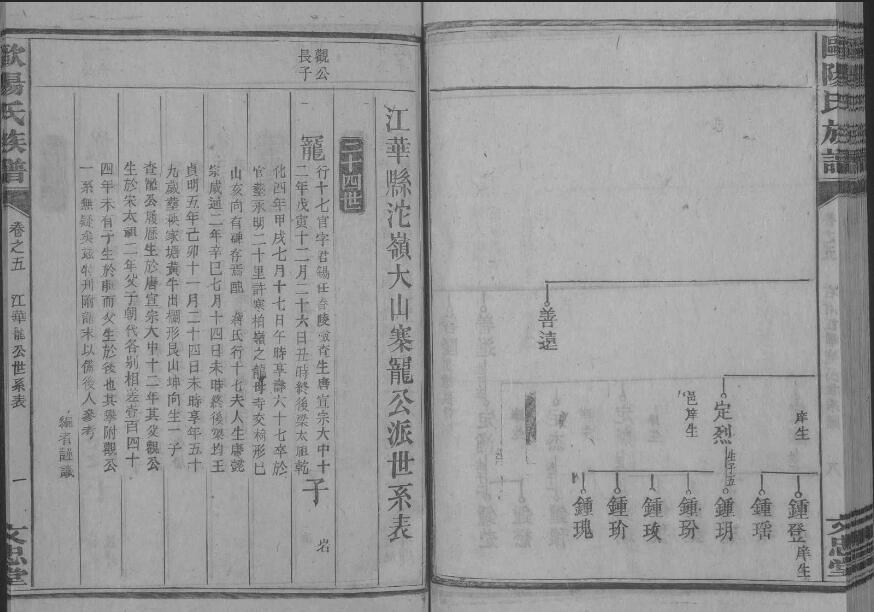 歐陽氏族譜
庠生
鍾登 庠生
鍾瑶
定烈
生子五
鍾玥
邑庠生
鍾玢
鍾玫
鍾玠
鍾瑰
善遠
文忠堂
江華縣沱嶺大山寨寵公派世系表
三十四世
觀公長子
寵
行十七官字君錫任春陵
生唐宣宗大中十
二年戊寅十二月二十六日丑時終後梁太祖乾
化四年甲戌七月十七日午時享壽六十七卒於
官塟永明二十里許寒柏嶺之龍母寺交椅形巳
山亥向有碑存焉
蔣氏行十七夫人生唐懿
宗咸通二年辛巳七月十四日未時終後梁均王
貞明五年己卯十一月二十四日未時享年五十
九歲塟
家塘黃牛出欄形艮山坤向生一子
子 岩
查
公履歷生於唐宣宗大中十二年其父觀公
生於宋太祖二年父子朝代各別相差壹百四十
四年未有子生於前而父生於後也其譽附觀公
一系無疑矣茲特刋附
末以備後人參考
編者謹識
歐陽氏族譜
卷之五 江華寵公世系表
一
文忠堂